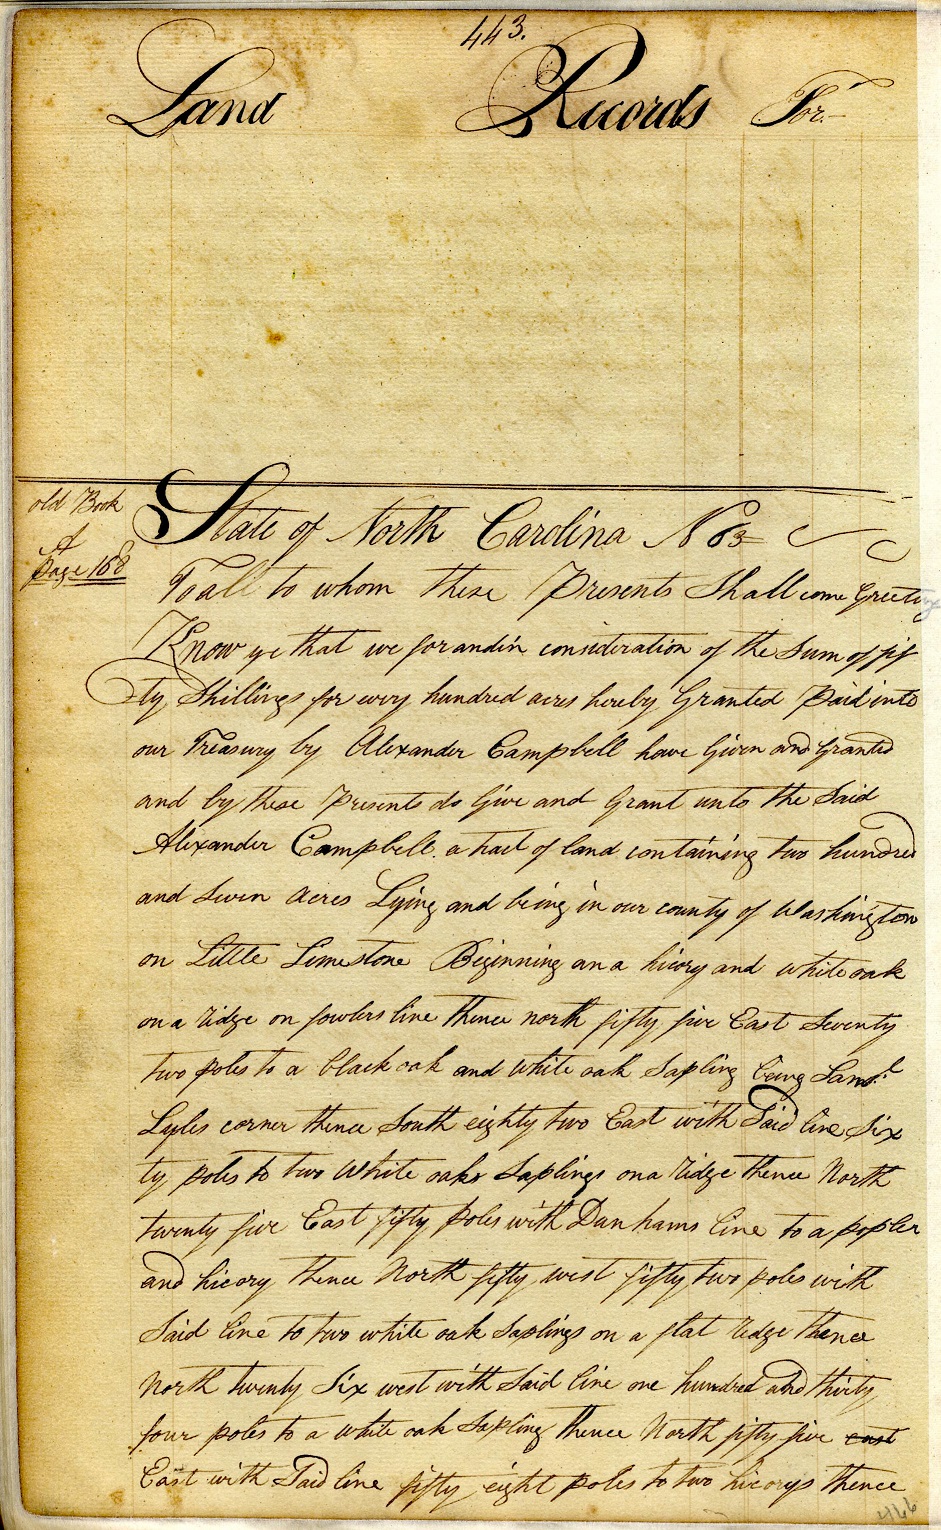 443.
Land Records For.
old Book
A
page 168
State of North Carolina No 63
To all to whom these Presents Shall come Greeting
Know ye that we for and in consideration of the Sum of fif
ty Shillings for every hundred acres hereby Granted Paid into
our Treasury by Alexander Campbell have Given and Granted
and by these Presents do Give and Grant unto the Said
Alexander Campbell a tract of land containing two hundred
and Seven acres Lying and being in our county of Washington
on Little Limestone Beginning an a hicory and white oak
on a ridge on fowlers line thence north fifty five East Seventy
two poles to a black oak and white oak Sapling being Saml
Lyles corner thence South eighty two East with Said line Six
ty poles to two White oaks Saplings on a ridge thence North
twenty five East fifty poles with Danhams line to a popler
and hicory thence North fifty west fifty two poles with
Said line to two white oak Saplings on a flat ridge thence
North twenty Six west with Said line one hundred and thirty
four poles to a white oak Sapling thence North fifty five east
East with Said line fifty eight poles to two hicorys thence
466